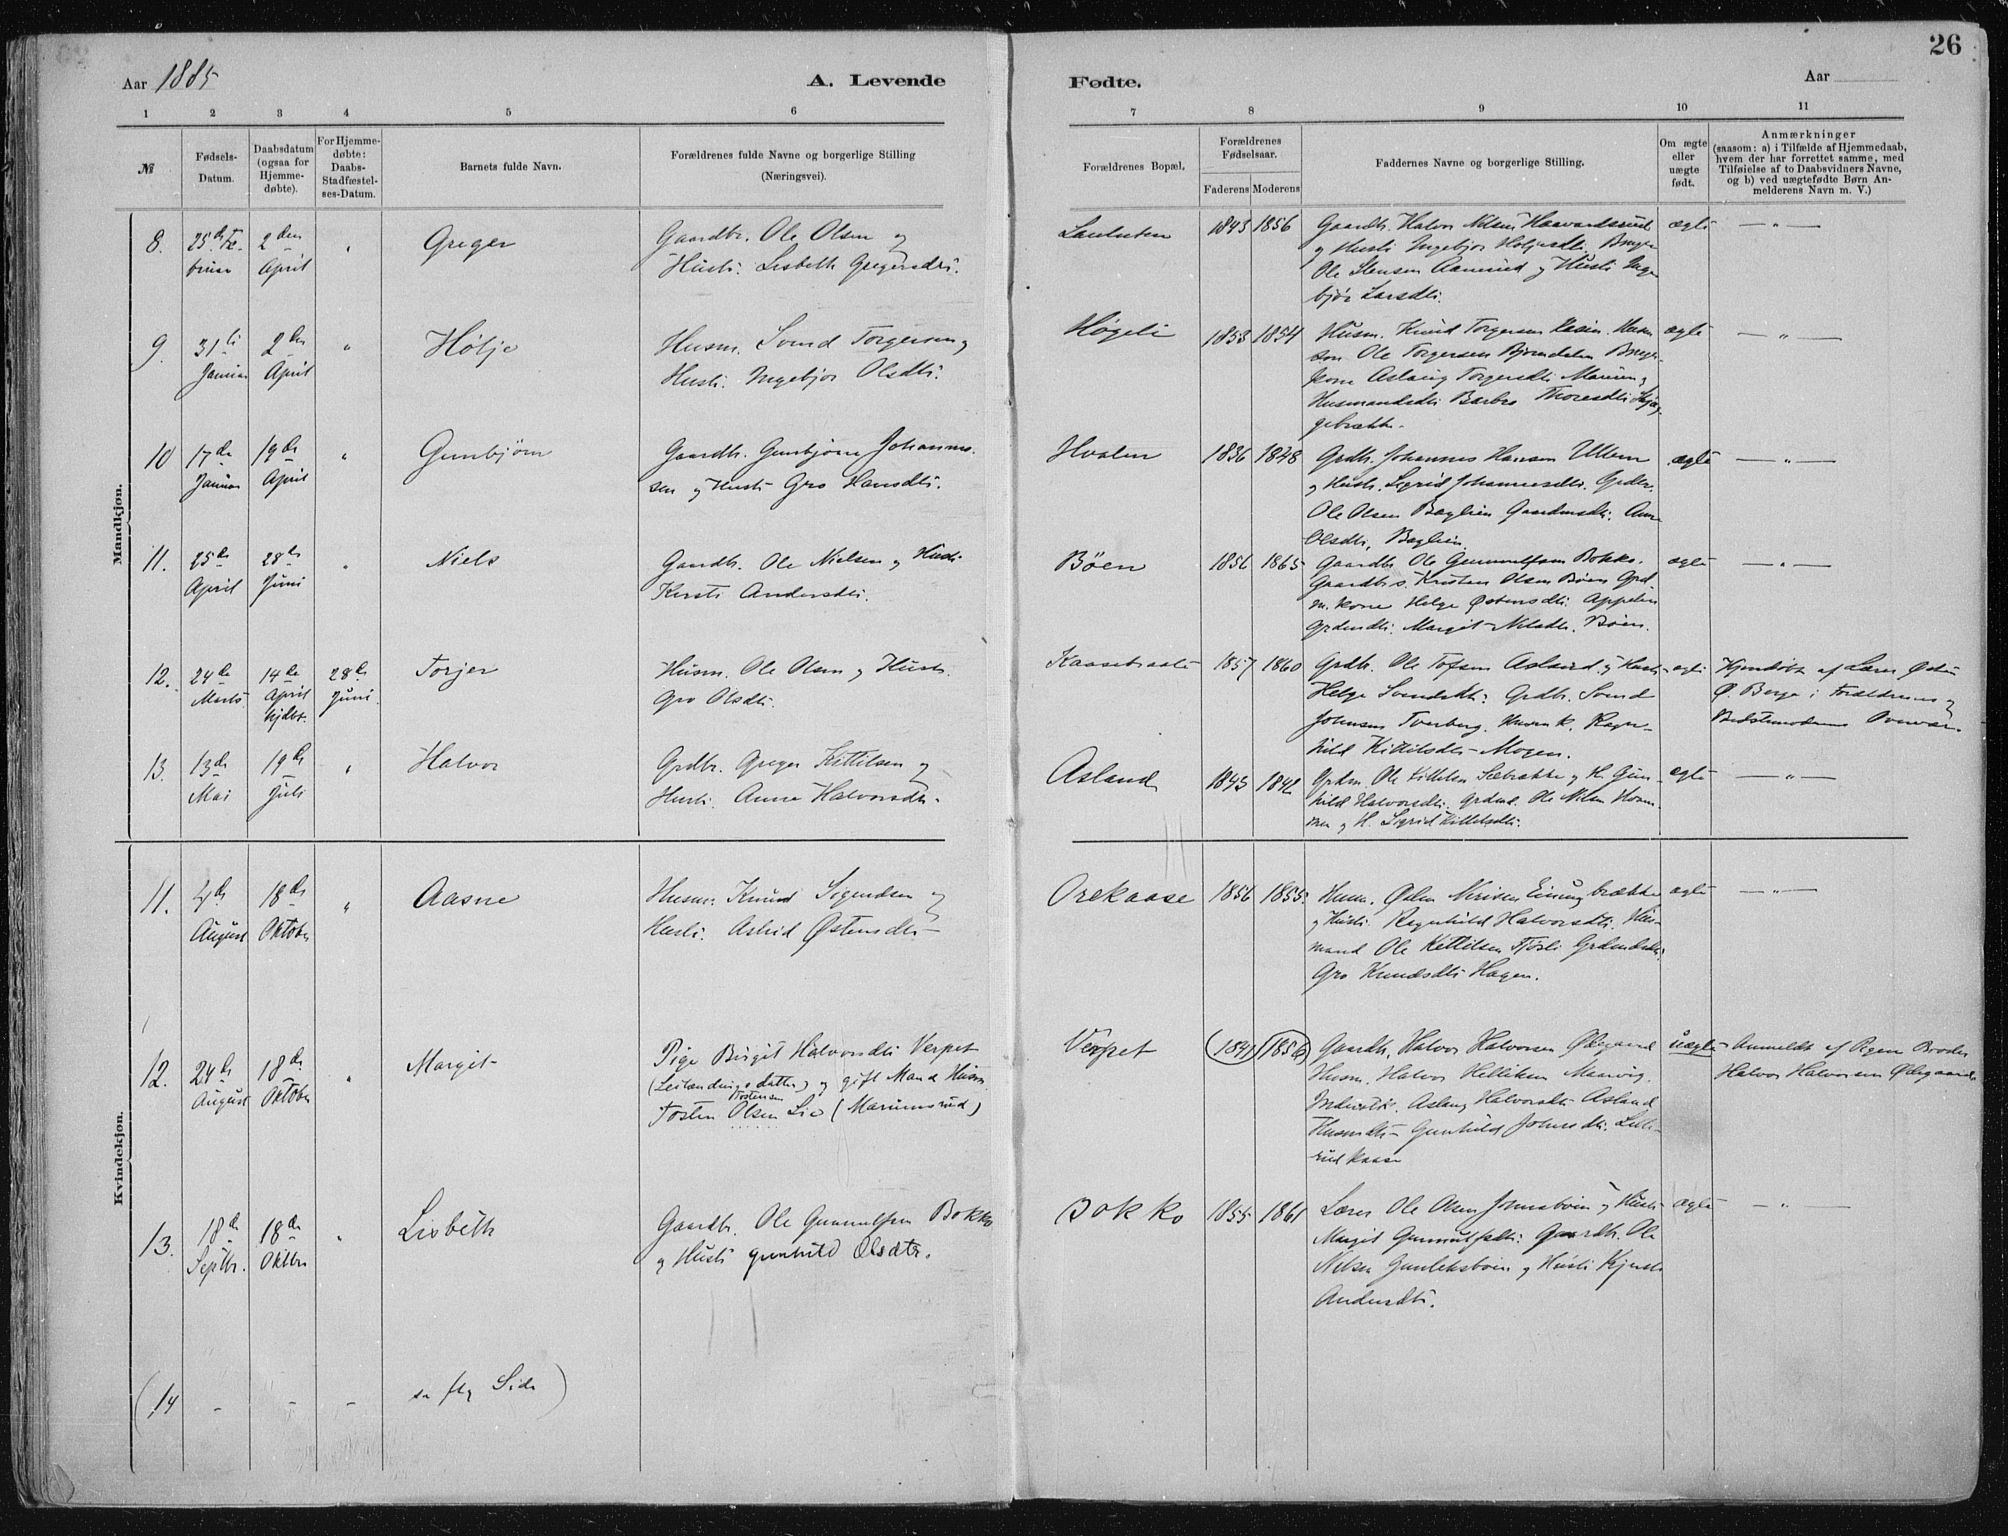 Aar 1885
A. Levende
Fødte.
Aar
26
1 2 3 4 5 6 7 8 9 10 11
№
Fødsels-
Datum.
Daabsdatum
(ogsaa for
Hjemme-
døbte).
For Hjemme-
døbte:
Daabs-
Stadfæstel-
ses-Datum.
Barnets fulde Navn.
Forældrenes fulde Navne og borgerlige Stilling
(Næringsvei).
Forældrenes Bopæl,
Forældrenes
Fødselsaar.
Faderens Moderens
Faddernes Navne og borgerlige Stilling.
Om ægte
eller
uægte
født.
Anmærkninger
(saasom: a) i Tilfælde af Hjemmedaab,
hvem der har forrettet samme, med
Tilføielse af to Daabsvidners Navne,
og b) ved uægtefødte Børn An-
melderens Navn m. V.)
Mandkjøn.
8.
25de Fe-
bruar
2den
April
"
Greger
Gaardbr. Ole Olsen og
Hustr. Lisbeth Gregersdtr.
1843 1856
Gaardbr. Halvor Nilsen Haavardsrud
og Hustr. Ingebjør
Ole Stensen Aamrud og Hustr. Inge-
bjør Larsdtr.
ægte
— " —
9.
31te
Januar
2den
April
"
Hølje
Husm. Svend Torgersen og
Hustr. Ingebjør Olsdtr.
Høgeli
1853 1854
Husm. Knud Torgersen
Ole Torgersen Bjørndalen
kone Aslaug Torgersdtr.
Husmandsdtr. Barbro Thoresdtr.
ægte
— " —
10
17de
Januar
19de
April
"
Gunbjørn
Gaardbr. Gunbjørn Johannes-
sen og Hustr. Gro Hansdtr.
Hvalen
1836 1848
Grdbr. Johannes Hansen Ullern
og Hustr. Sigrid Johannesdtr.
Ole Olsen Bæglien Gaardmdtr. Anne
Olsdtr. Bæglien.
ægte
— " —
11.
25de
April
28de
Juni
"
Niels
Gaardbr. Ole Nielsen og Hustr.
Kersti Andersdtr.
Böen
1856 1865
Gaardbr. Ole Gunnulfsen Bokko.
Gaardbrs. Kristen Olsen Böen Grd-
m. kone Helge Østensdtr. Appelen
Grdmdtr. Margit Nilsdtr. Böen.
ægte
— " —
12.
24de
Marts
14de
April
hjdbt.
28de
Juni
Torjer
Husm. Ole Olsen og Hustr.
Gro Olsdtr.
1857 1860
Grdbr. Ole Tofsen Aslaud og Hustr.
Helge Svendsdtr. Grdbr. Svend
Johnsen Tverberg. Husmk. Ragn-
hild Kittilsdtr. Mogen.
ægte
Hjemdøbt af Lærer Østen
Ø. Berge i Forældrenes og
Bedstemoderens Overvær.
13.
13de
Mai
19de
Juli
"
Halvor
Grdbr. Greger Kittilsen og
Hustr. Anne Halvorsdtr.
Asland
1843 1842
Grdm. Ole Kittelsen Sæbrække og H. Gun-
hild Halvorsdtr. Grdmd. Ole Nilsen
og H. Sigrid Kittelsdtr.
ægte
— " —
Kvindekjøn.
11.
4de
August
18de
Oktober
"
Aasne
Husm. Knud Sigurdsen og
Hustr. Astrid Østensdtr.
Orekaase
1856 1855
Husm.
og Hustr. Ragnhild Halvorsdtr. Hus-
mand Ole Kittilsen Fjösli Grdmdsdtr.
Gro Knudsdtr. Hagen.
ægte
— " —
12.
24de
August
18de
Oktober
"
Margit
Pige Birgit Halvorsdtr. Verpet
(Leilændingsdatter) og gift Mand Husm.
Tostensen
Tosten Olsen Lie (Mariumsrud)
Verpet
(1841) (1856)
Gaardbr. Halvor Halvorsen Ødegaard
Husm. Halvor Helliksen Maavig.
Inderstm. Aslaug Halvorsdtr. Asland
Husmdtr. Gunhild Johnsdtr. Lille-
rud kaase
uægte
Anmeldt af Pigens Broder
Halvor Halvorsen Ødegaard.
13.
18de
Septbr.
18de
Oktbr.
"
Lisbeth
Gaardbr. Ole Gunnulfsen Bokko
og Hustr. Gunhild Olsdtr.
Bokko
1855 1861
Lærer Ole Olsen Jonsebøin og Hustr.
Margit Gunnulfsdtr. Gaardbr. Ole
Nilsen Gunleiksbøin og Hustr. Kjersti
Andersdtr.
ægte
— " —
(14
- - -
se flg Side)